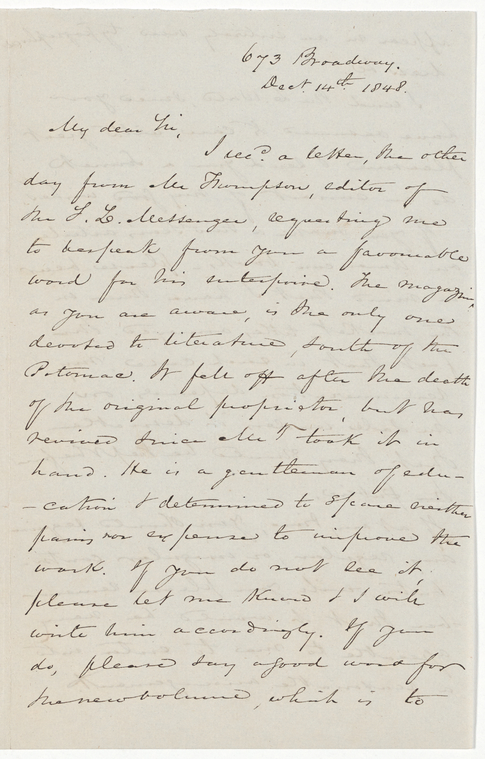 673 Broadway.
Dect. 14th 1848.
My dear Sir,
I recd. a letter, the other
day from Mr Thompson, editor of
the S. L. Messenger, requesting me
to bespeak from you a favourable
word for his enterprise. The magazine
as you are aware, is the only one
devoted to literature, south of the
Potomac. It fell off after the death
of the original proprietor, but has
revived since Mr T took it in
hand. He is a gentleman of edu-
-cation & determined to spare neither
pains nor expense to improve the
work. If you do not see it,
please let me know & I will
write him accordingly. If you
do, please say a good word for
the new volume, which is to